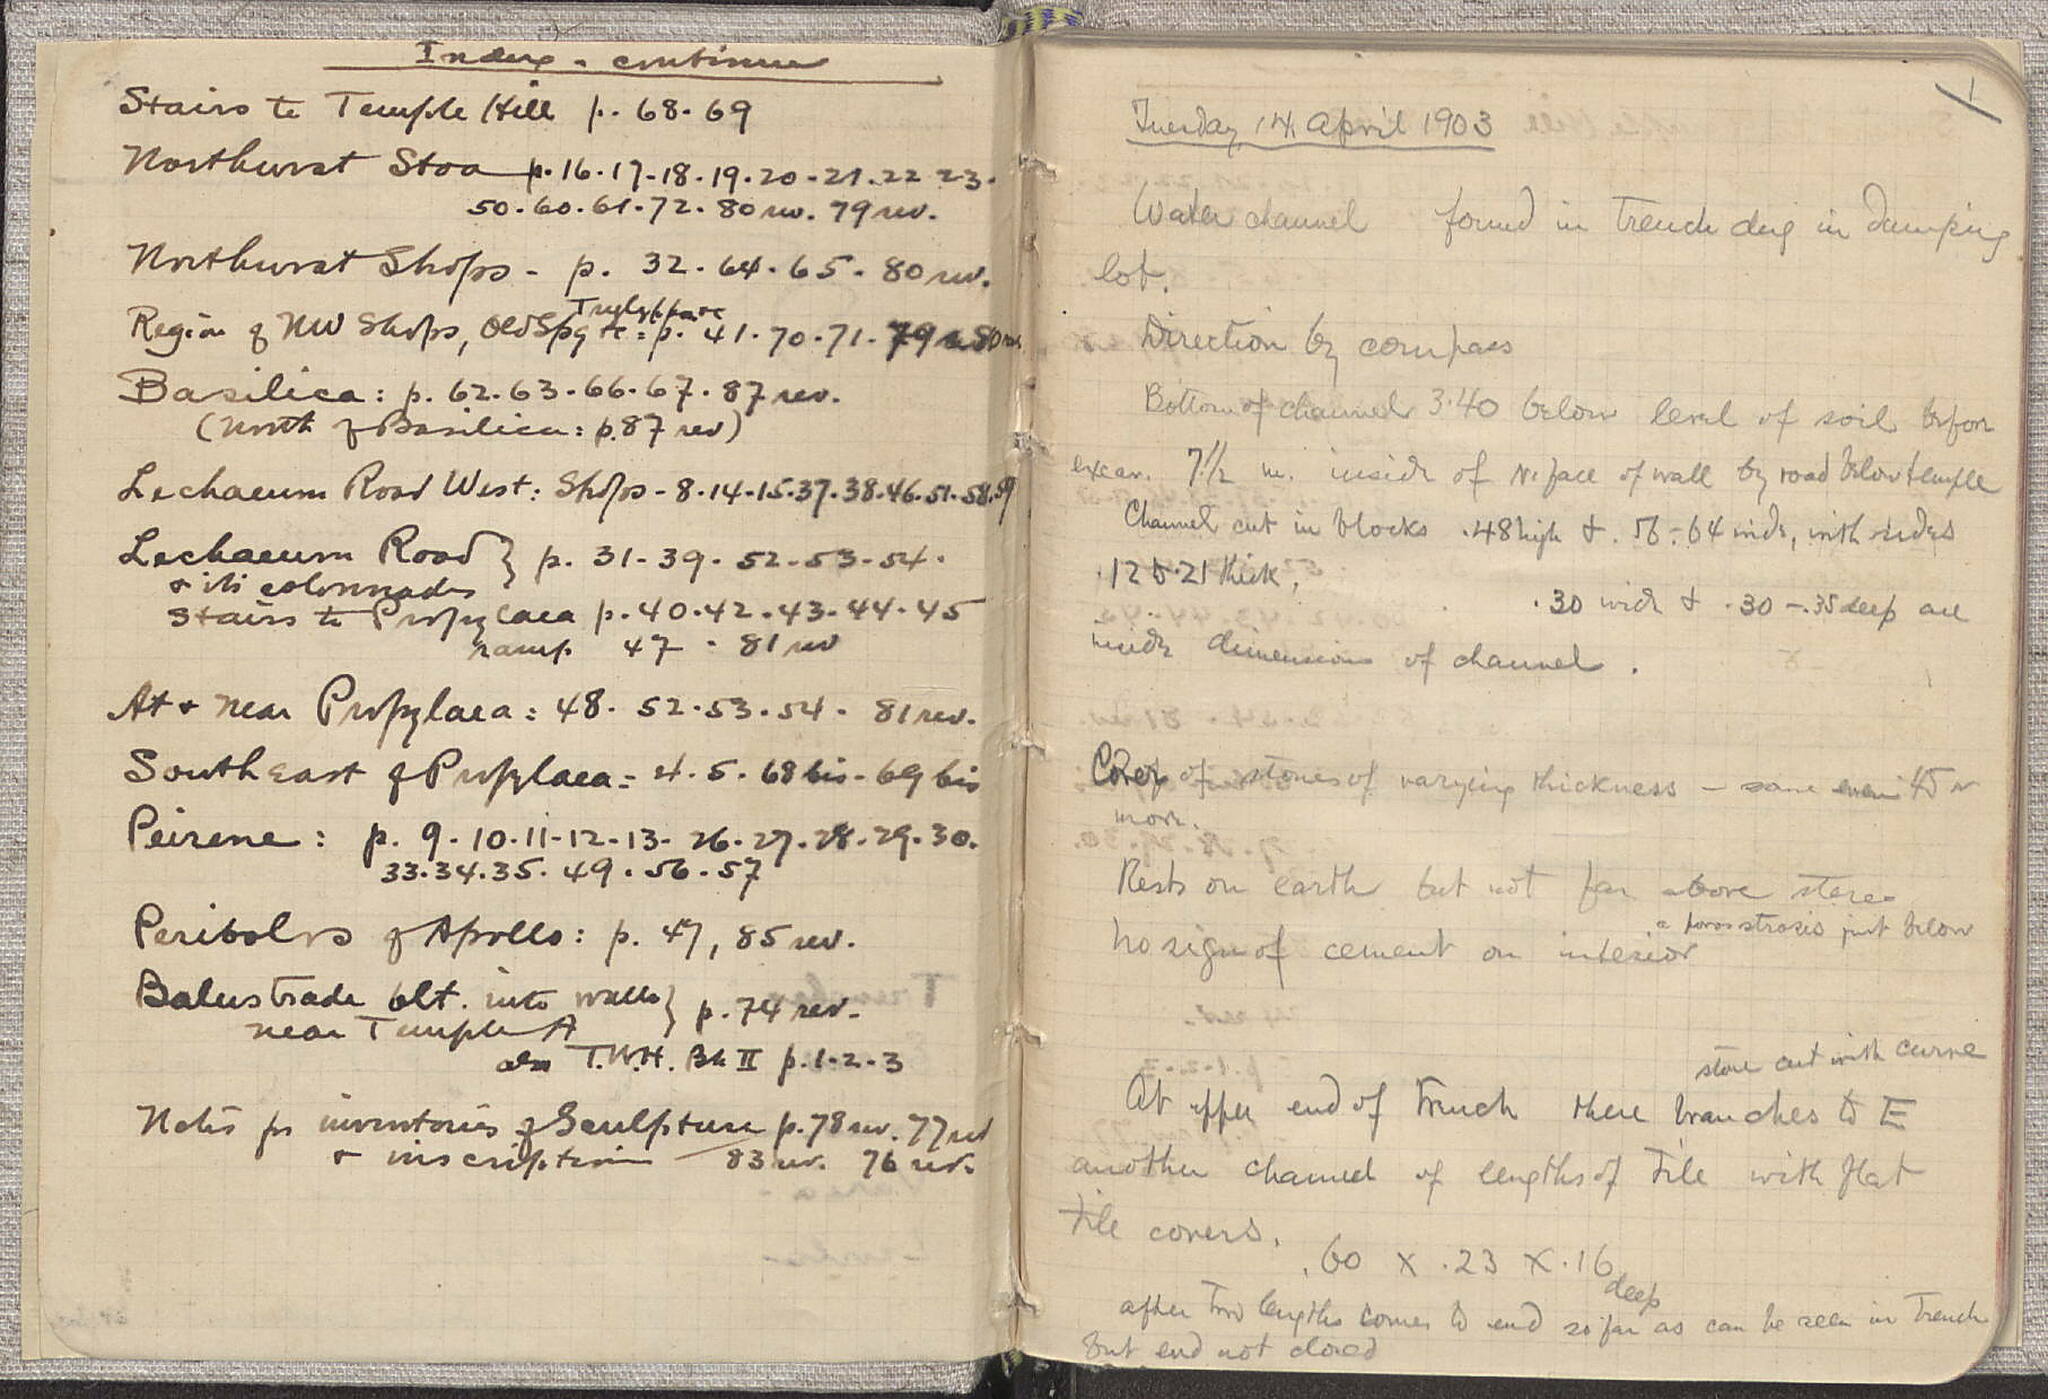 Index - continue
Stairs to Temple Hill p. 68-69
Northwest Stoa p. 16-17-18-19-20-21-22 23-
50-60-61-72-80 rev. 79 rev.
Northwest Shops - p. 32-64-65-80 rev.
Triglyph &c
Region of NW Shops, Old Spg &c: p. 41-70-71-79 80 rev.
Basilica: p. 62-63-66-67-87 rev.
(North of Basilica: p. 87 rev)
Lechaeum Road West: Shops - 8-14-15-37-38-46-51-58-59
Lechaeum Road } p. 31-39-52-53-54-
& its colonnades
Stairs to Propylaea p. 40-42-43-44-45
ramp 47 - 81 rev
At & near Propylaea: 48-52-53-54- 81 rev.
Southeast of Propylaea - 4-5-68 bis-69 bis
Peirene: p. 9-10-11-12-13-26-27-28-29-30.
33-34-35-49-56-57
Peribolos of Apollo: p. 47, 85 rev.
Balustrade blt. into walls } p. 74 rev.
near Temple A
also T.W.H. Bk II p. 1-2-3
Notes for inventories of Sculpture p. 78 rev. 77 rev
& inscription 83 rev. 76 rev.
1
Tuesday, 14 April 1903
Water channel found in trench dug in dumping
lot.
Direction by compass
Bottom of channel 3.40 below level of soil before
excav. 7 1/2 m. inside of N. face of wall by road below temple
Channel cut in blocks .48 high & .56-.64 wide, with sides
.12 to .21 thick.
.30 wide & .30 - .35 deep are
inside dimensions of channel.
Cover of stones of varying thickness - some even 45 or
more.
Rests on earth but not far above stereo
a poros strosis just below
No sign of cement on interior
stone cut with curve
At upper end of trench there branches to E
another channel of lengths of tile with flat
tile covers.
.60 x .23 x .16 deep
after two lengths comes to end so far as can be seen in trench
but end not closed